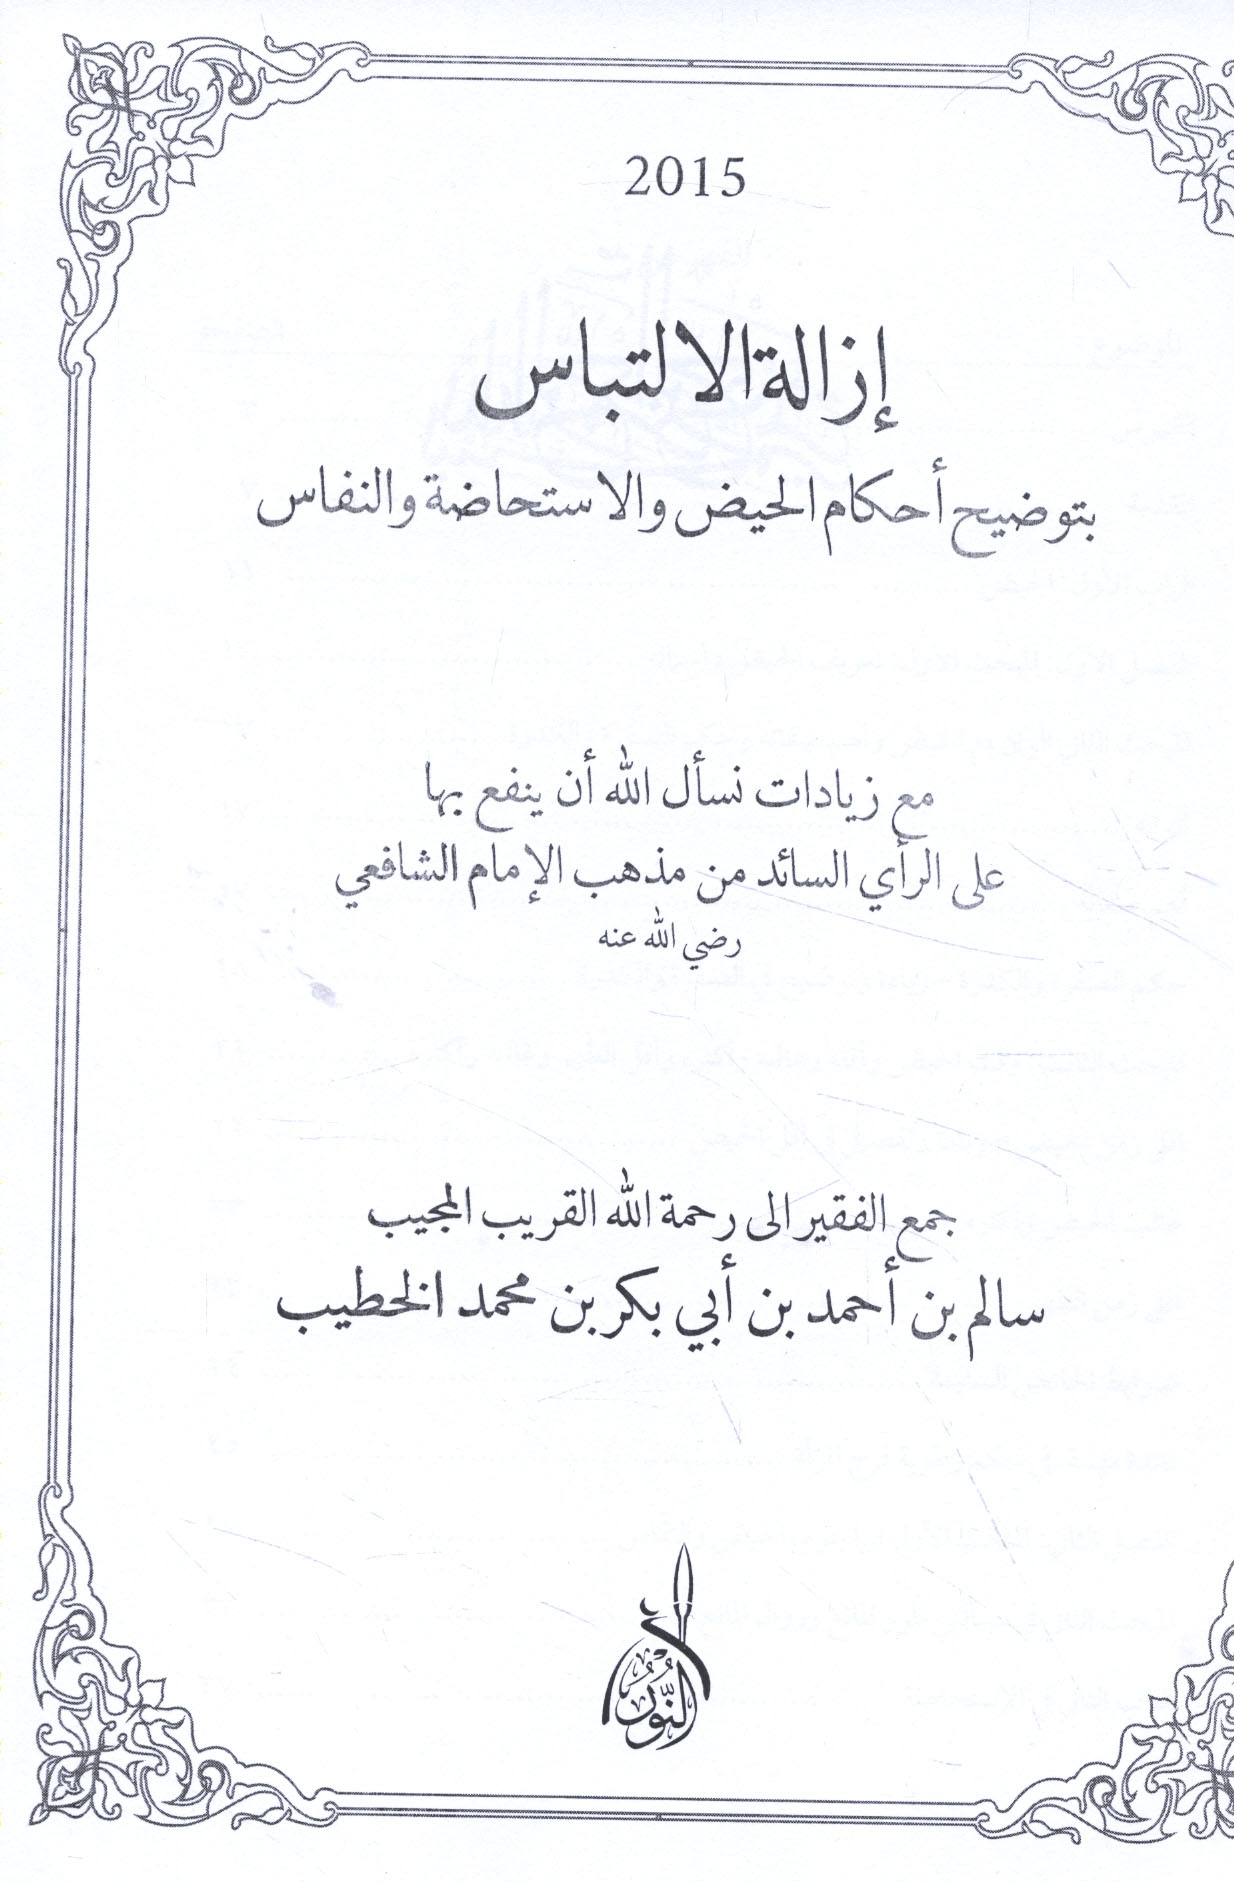 2015
إزالة الالتباس
بتوضيح أحكام الحيض والاستحاضة والنفاس
مع زيادات نسأل الله أن ينفع بها
على الرأي السائد من مذهب الإمام الشافعي
رضي الله عنه
جمع الفقير الى رحمة الله القريب المجيب
سالم بن أحمد بن أبي بكر بن محمد الخطيب
النُّور